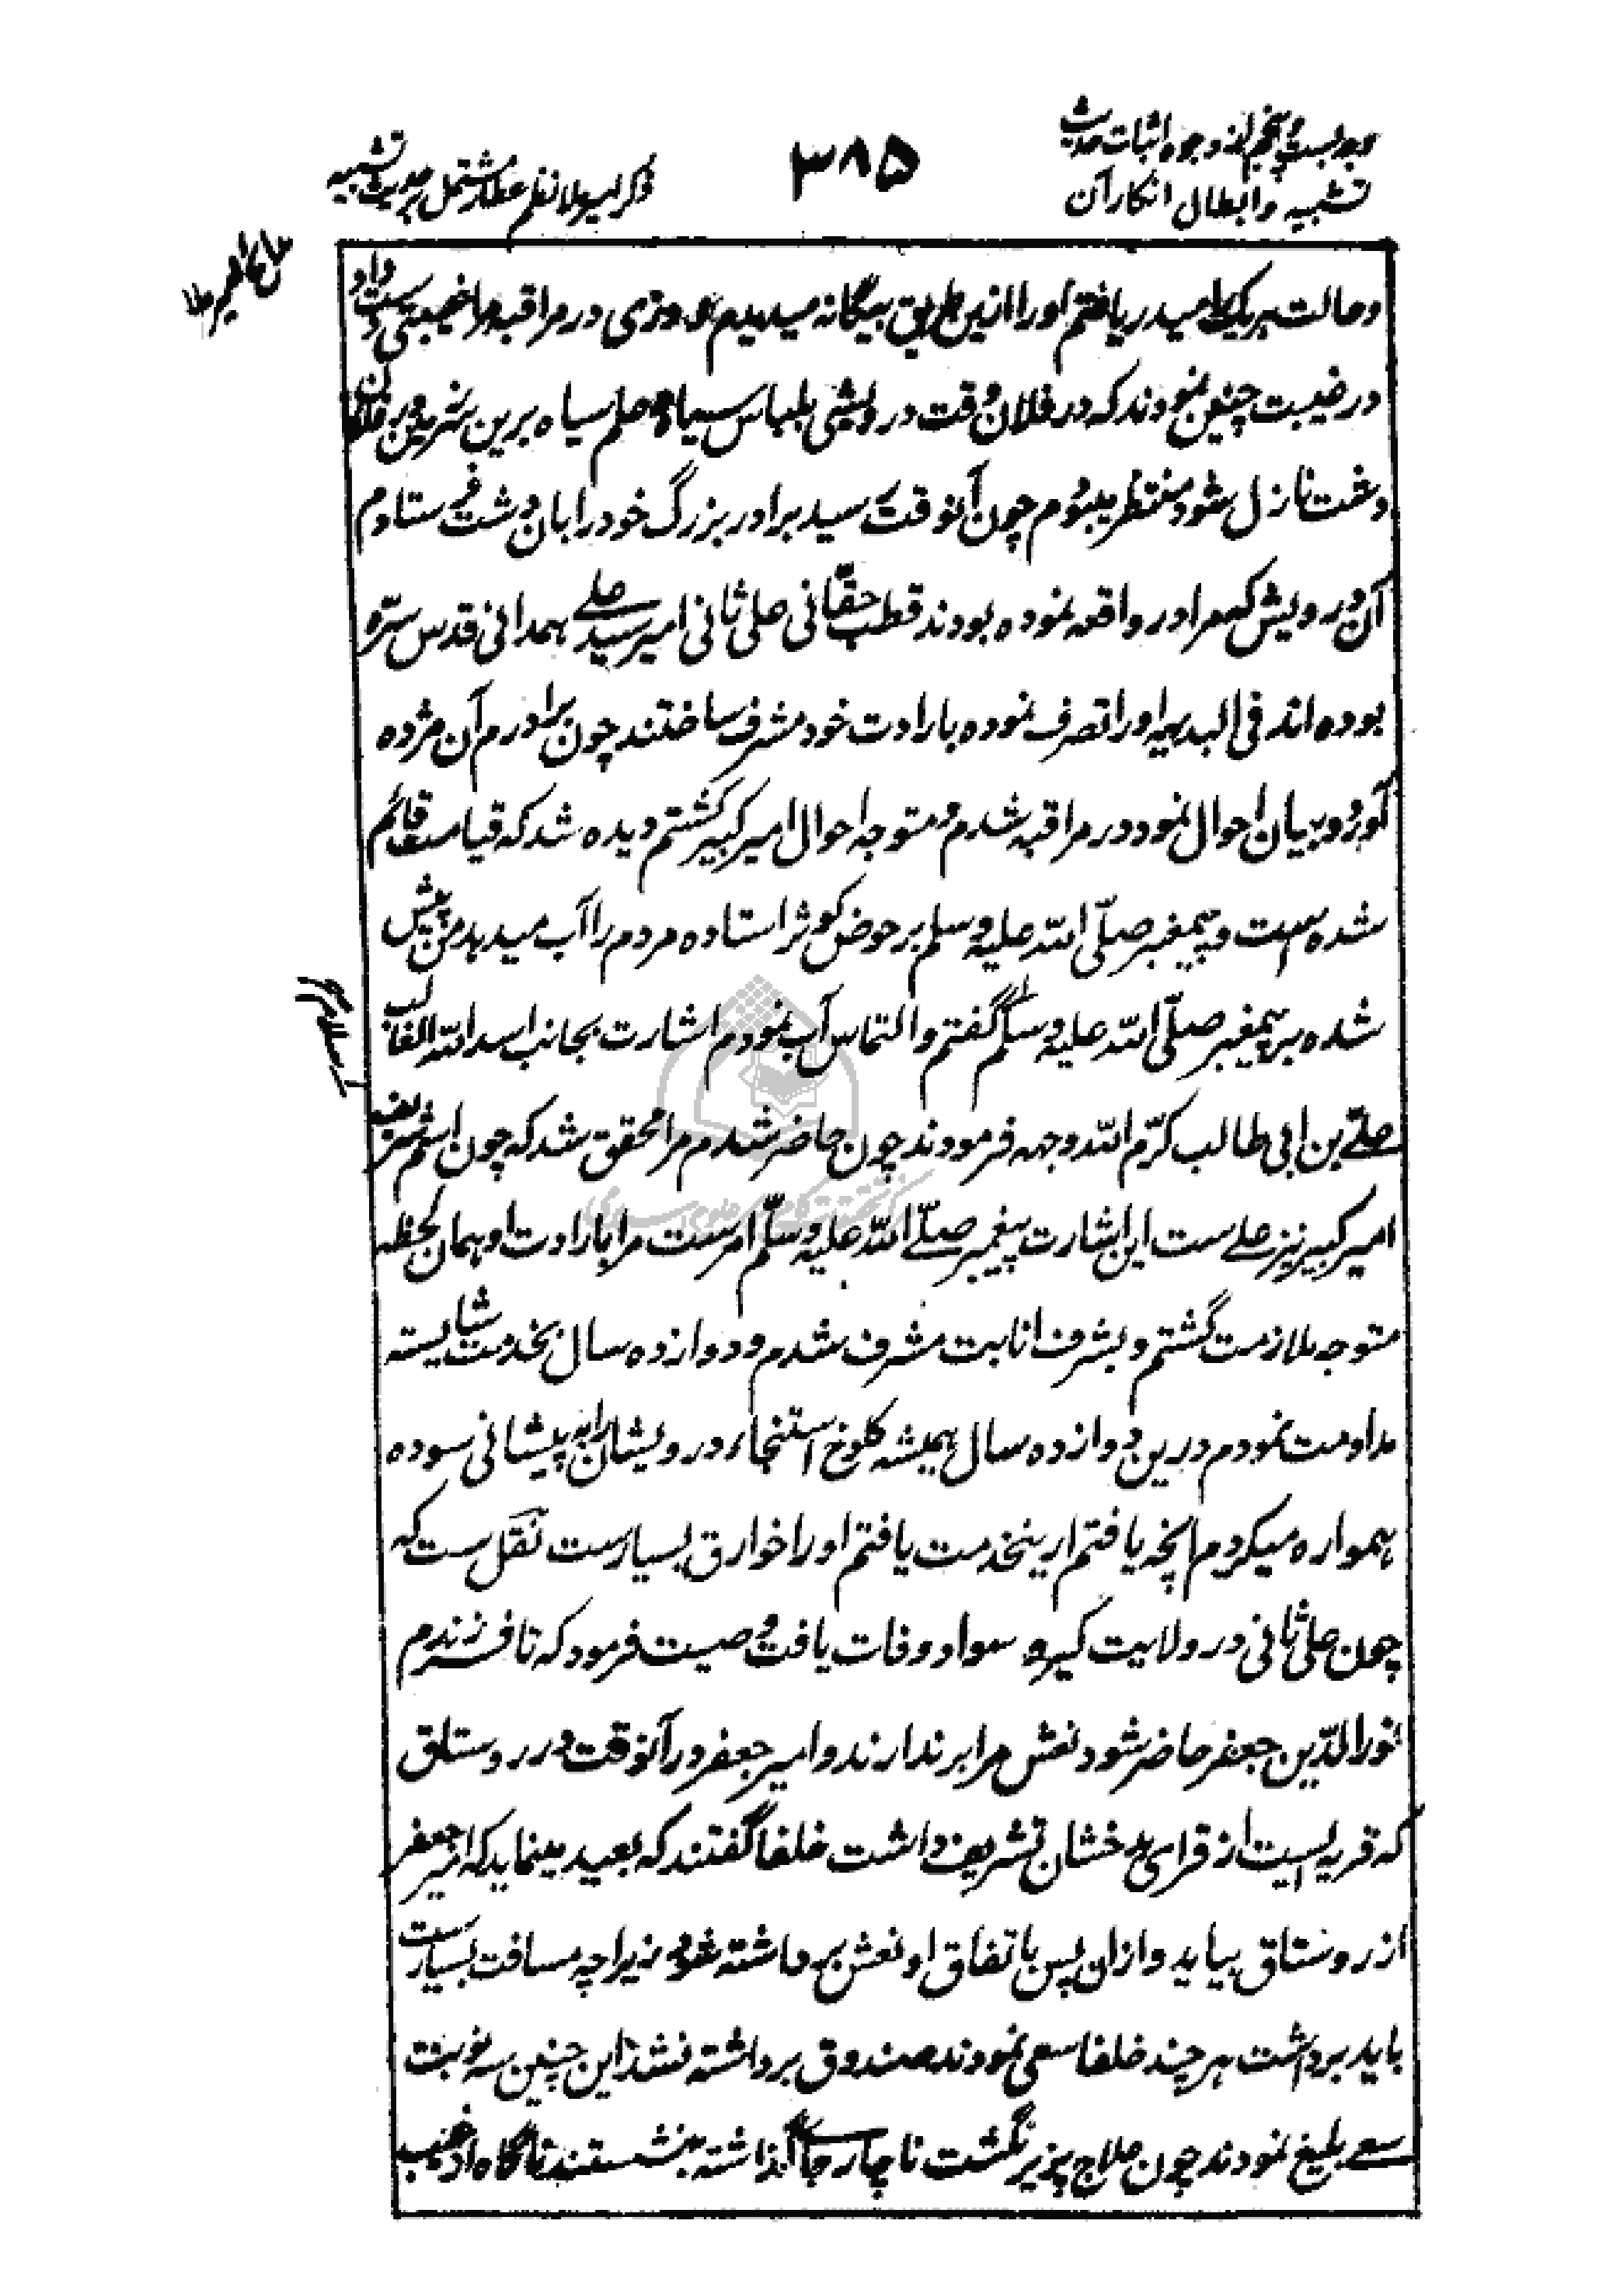 وجه بست و پنجم از وجوه اثبات حدیث
تشبیه و ابطال انکار آن
۳۸۵
ذکر میر ملا نظم عطار مشتمل بر حدیث تشبیه
و حالت هریک را میدریافتم او را ازین طریق بیگانه میدیدیم روزی در مراقبه مرا غیبتی دست داد
در غیبت چنین نمودند که در فلان وقت درویشی بلباس سیاه و علم سیاه برین سرزمین در فلان
دشت نازل شود منتظر میبودم چون آنوقت رسید برادر بزرگ خود را بان دشت فرستادم
آن درویش که مرا در واقعه نموده بودند قطب حقّانی علی ثانی امیر سید علے همدانی قدس سرّه
بوده اند فی البدیهه او را تصرف نموده بارادت خود مشرف ساختند چون برادرم آن مژده
آورد و بیان احوال نمود در مراقبه شدم و متوجه احوال امیر کبیر گشتم دیده شد که قیامت قائم
شده است و پیمغبر صلّی اللّه علیه و سلم بر حوض کوثر استاده مردم را آب میدهد من پیش
شده بر پیمغبر صلّی اللّه علیه و سلم سلام گفتم و التماس آب نمودم اشارت بجانب اسد اللّه الغالب
علے بن ابی طالب کرّم اللّه وجهه فرمودند چون حاضر شدم مرا محقق شد که چون اسم شریف
امیر کبیر نیز علے ست این اشارت پیغمبر صلے اللّه علیه و سلّم امرست مرا بارادت او همان لحظه
متوجه ملازمت گشتم و بشرف انابت مشرف شدم و دوازده سال بخدمت شایسته
مداومت نمودم درین دوازده سال همیشه کلوخ استنجاء درویشان را به پیشانی سوده
هموار ه میکردم انچه یافتم ازینخدمت یافتم او را خوارق بسیارست نقل ست که
چون علی ثانی در ولایت کبر و سواد وفات یافت وصیت فرمود که تا فرزندم
نور الدّین جعفر حاضر شود نعش مرا برندارند و امیر جعفر در آنوقت در روستاق
که قریه ایست از قرای بدخشان تشریف داشت خلفا گفتند که بعید مینماید که امیر جعفر
از روستاق بیاید و ازان پس باتفاق او نعش برداشته شود زیراچه مسافت بسیارست
باید برداشت هر چند خلفا سعی نمودند صندوق برداشته نشد این چنین سه نوبت
سعے بلیغ نمودند چون علاج پزیر نگشت ناچار جاے گذاشته بنشستند ناگاه از غیب